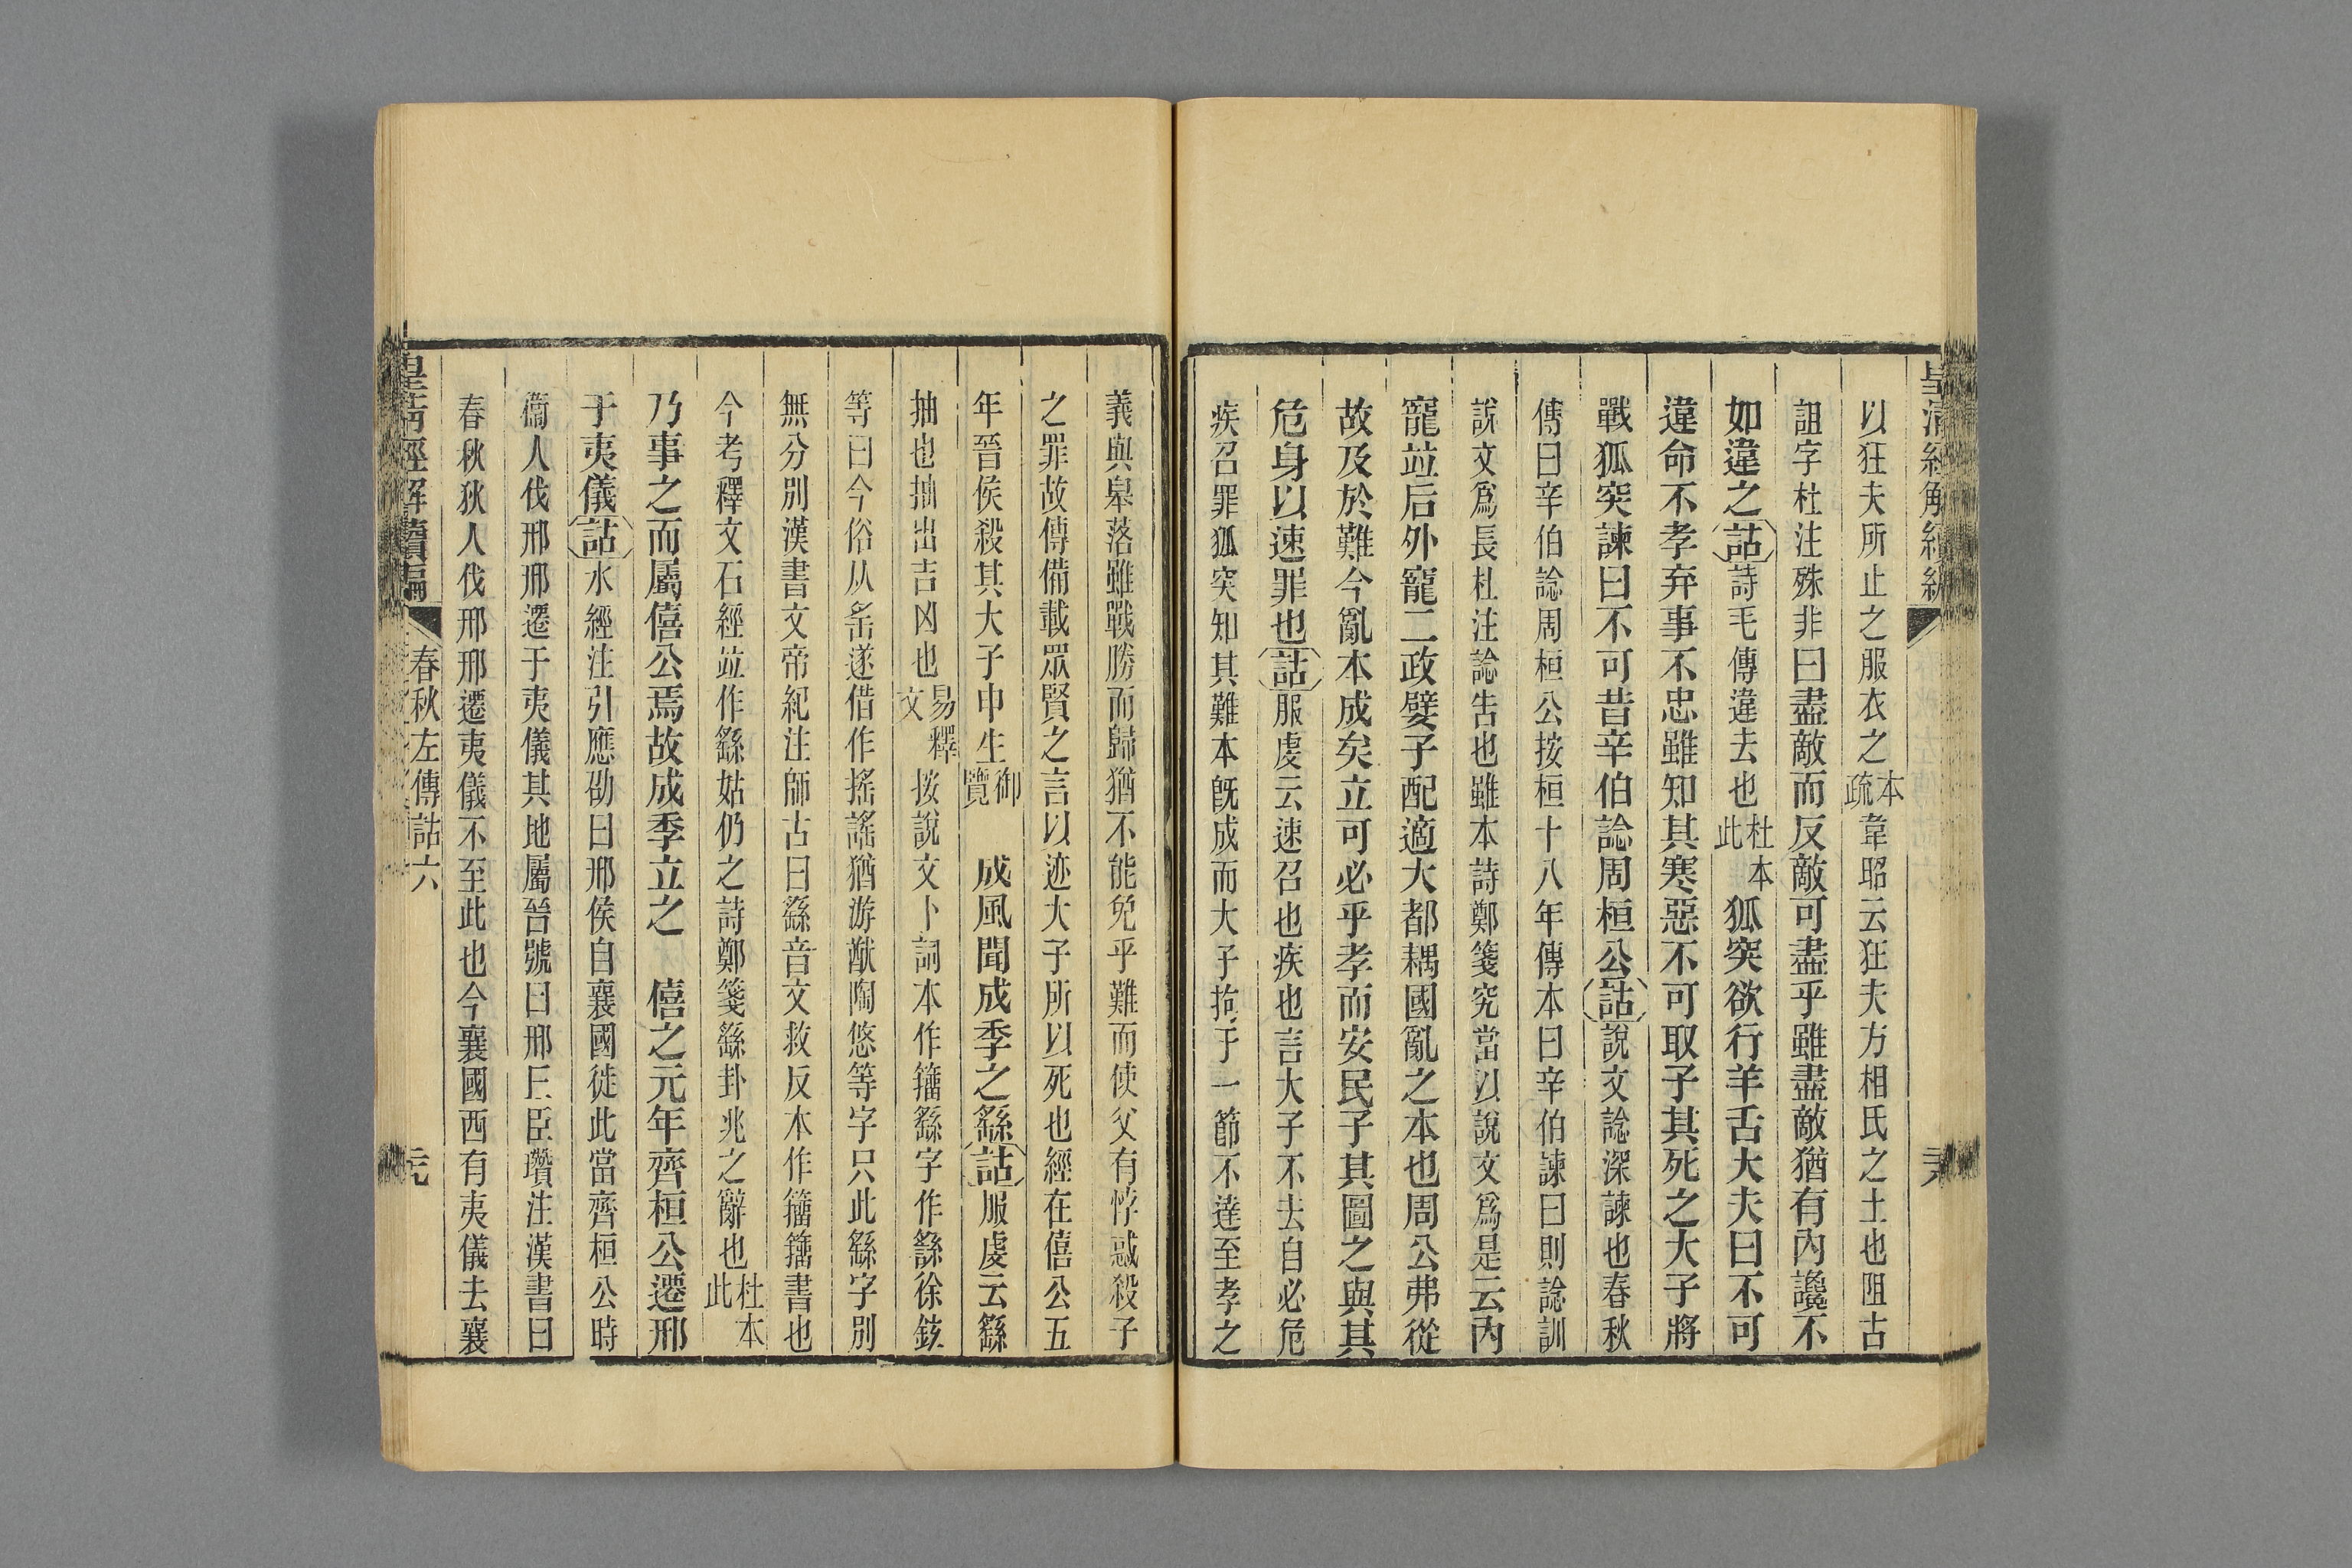 皇清經解續編
以狂夫所止之服衣之本疏韋昭云狂夫方相氏之士也阻古
詛字杜注殊非曰盡敵而反敵可盡乎雖盡敵猶有內讒不
如違之詁詩毛傳違去也杜本此狐突欲行羊舌大夫曰不可
違命不孝弃事不忠雖知其寒惡不可取子其死之大子將
戰狐突諫曰不可昔辛伯諗周桓公詁說文諗深諫也春秋
傳曰辛伯諗周桓公按桓十八年傳本曰辛伯諫曰則諗訓
說文爲長杜注諗告也雖本詩鄭箋究當以說文爲是云內
寵竝后外寵二政嬖子配適大都耦國亂之本也周公弗從
故及於難今亂本成矣立可必乎孝而安民子其圖之與其
危身以速罪也詁服虔云速召也疾也言大子不去自必危
疾召罪狐突知其難本旣成而大子拘于一節不達至孝之
義與皋落雖戰勝而歸猶不能免乎難而使父有悖惑殺子
之罪故傳備載眾賢之言以迹大子所以死也經在僖公五
年晉侯殺其大子申生御覽　成風聞成季之繇詁服虔云繇
抽也抽出吉凶也易釋文按說文卜詞本作籒繇字作䌛徐鉉
等曰今俗从䍃遂借作搖謠猶游猷陶悠等字只此繇字別
無分別漢書文帝紀注師古曰繇音文救反本作籒籒書也
今考釋文石經竝作繇姑仍之詩鄭箋繇卦兆之辭也杜本此
乃事之而屬僖公焉故成季立之　僖之元年齊桓公遷邢
于夷儀詁水經注引應劭曰邢侯自襄國徙此當齊桓公時
衞人伐邢邢遷于夷儀其地屬晉號曰邢丘臣瓚注漢書曰
春秋狄人伐邢邢遷夷儀不至此也今襄國西有夷儀去襄
皇清經解續編　春秋左傳詁六　元